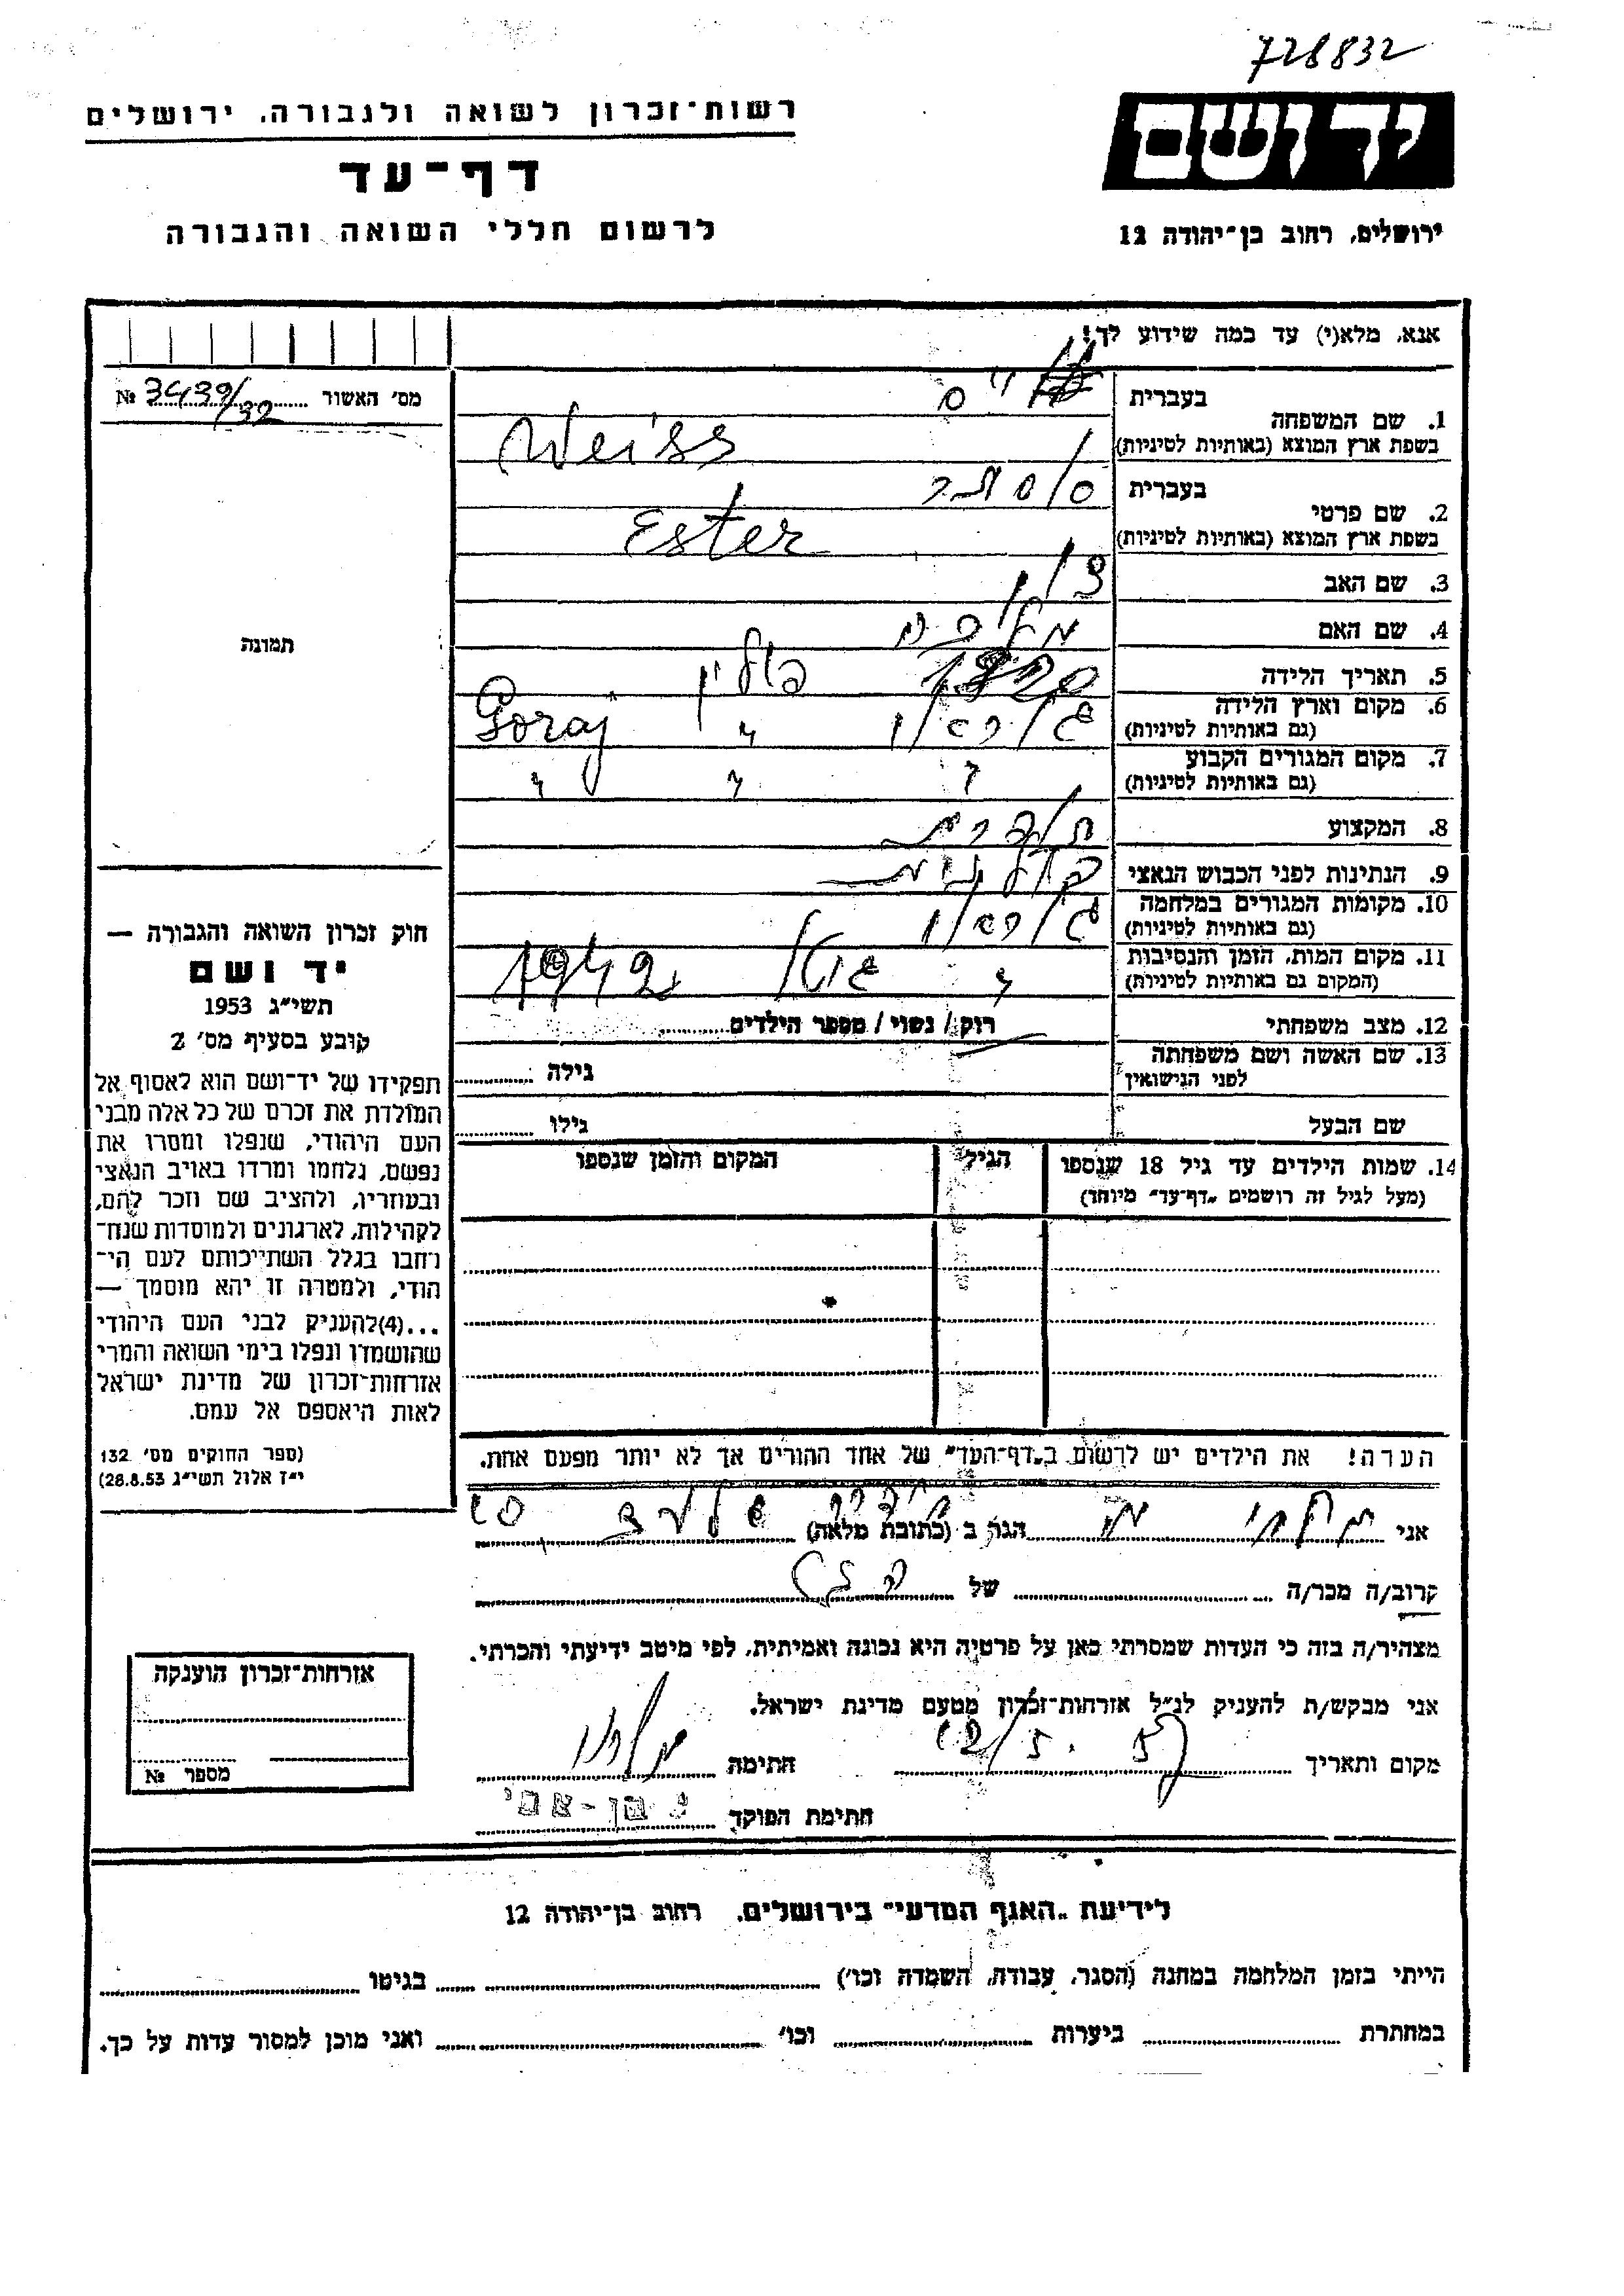 728832
רשות־זכרון לשואה ולגבורה. ירושלים
יד ושם
דף־עד
לרשום חללי השואה והגבורה
ירושלים, רחוב בן־יהודה 12
אנא, מלא(י) עד כמה שידוע לך!
מס׳ האשור 3439/32 №
1. שם המשפחה
בעברית
בשפת ארץ המוצא (באותיות לטיניות) Weiss
2. שם פרטי
בעברית אסתר
בשפת ארץ המוצא (באותיות לטיניות) Ester
3. שם האב
4. שם האם מלכה
תמונה
5. תאריך הלידה פולין
6. מקום וארץ הלידה Goraj
(גם באותיות לטיניות)
7. מקום המגורים הקבוע " " "
(גם באותיות לטיניות)
8. המקצוע תופרת
9. הנתינות לפני הכבוש הנאצי פולנית
10. מקומות המגורים במלחמה
(גם באותיות לטיניות)
11. מקום המות, הזמן והנסיבות " 1942
(המקום גם באותיות לטיניות)
12. מצב משפחתי רוק / נשוי / מספר הילדים
13. שם האשה ושם משפחתה
לפני הנישואין גילה
שם הבעל גילו
14. שמות הילדים עד גיל 18 שנספו הגיל המקום והזמן שנספו
(מעל לגיל זה רושמים „דף־עד״ מיוחד)
חוק זכרון השואה והגבורה —
יד ושם
תשי״ג 1953
קובע בסעיף מס׳ 2
תפקידו של יד־ושם הוא לאסוף אל
המולדת את זכרם של כל אלה מבני
העם היהודי, שנפלו ומסרו את
נפשם, נלחמו ומרדו באויב הנאצי
ובעוזריו, ולהציב שם וזכר להם,
לקהילות, לארגונים ולמוסדות שנח־
רבו בגלל השתייכותם לעם הי־
הודי, ולמטרה זו יהא מוסמך —
...(4)להעניק לבני העם היהודי
שהושמדו ונפלו בימי השואה והמרי
אזרחות־זכרון של מדינת ישראל
לאות היאספם אל עמם.
(ספר החוקים מס׳ 132
י״ז אלול תשי״ג 28.8.53)
הערה! את הילדים יש לרשום ב„דף־העד״ של אחד ההורים אך לא יותר מפעם אחת.
אני הגר ב (כתובת מלאה)
קרוב/ה מכר/ה של
מצהיר/ה בזה כי העדות שמסרתי כאן על פרטיה היא נכונה ואמיתית, לפי מיטב ידיעתי והכרתי.
אני מבקש/ת להעניק לנ״ל אזרחות־זכרון מטעם מדינת ישראל.
מקום ותאריך חתימה
חתימת הפוקד י בן-אמי
אזרחות־זכרון הוענקה
מספר №
לידיעת „האגף המדעי״ בירושלים. רחוב בן־יהודה 12
הייתי בזמן המלחמה במחנה (הסגר, עבודה, השמדה וכו׳) בגיטו
במחתרת ביערות וכו׳ ואני מוכן למסור עדות על כך.